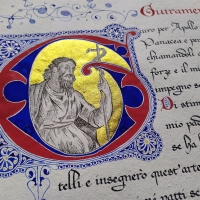 Giuramen
uro per Apollo
Panacea e per
chiamandoli
forze e il mi
impegno s
Di stim
mio pad
se ha b
telli e insegnerò quest'arte